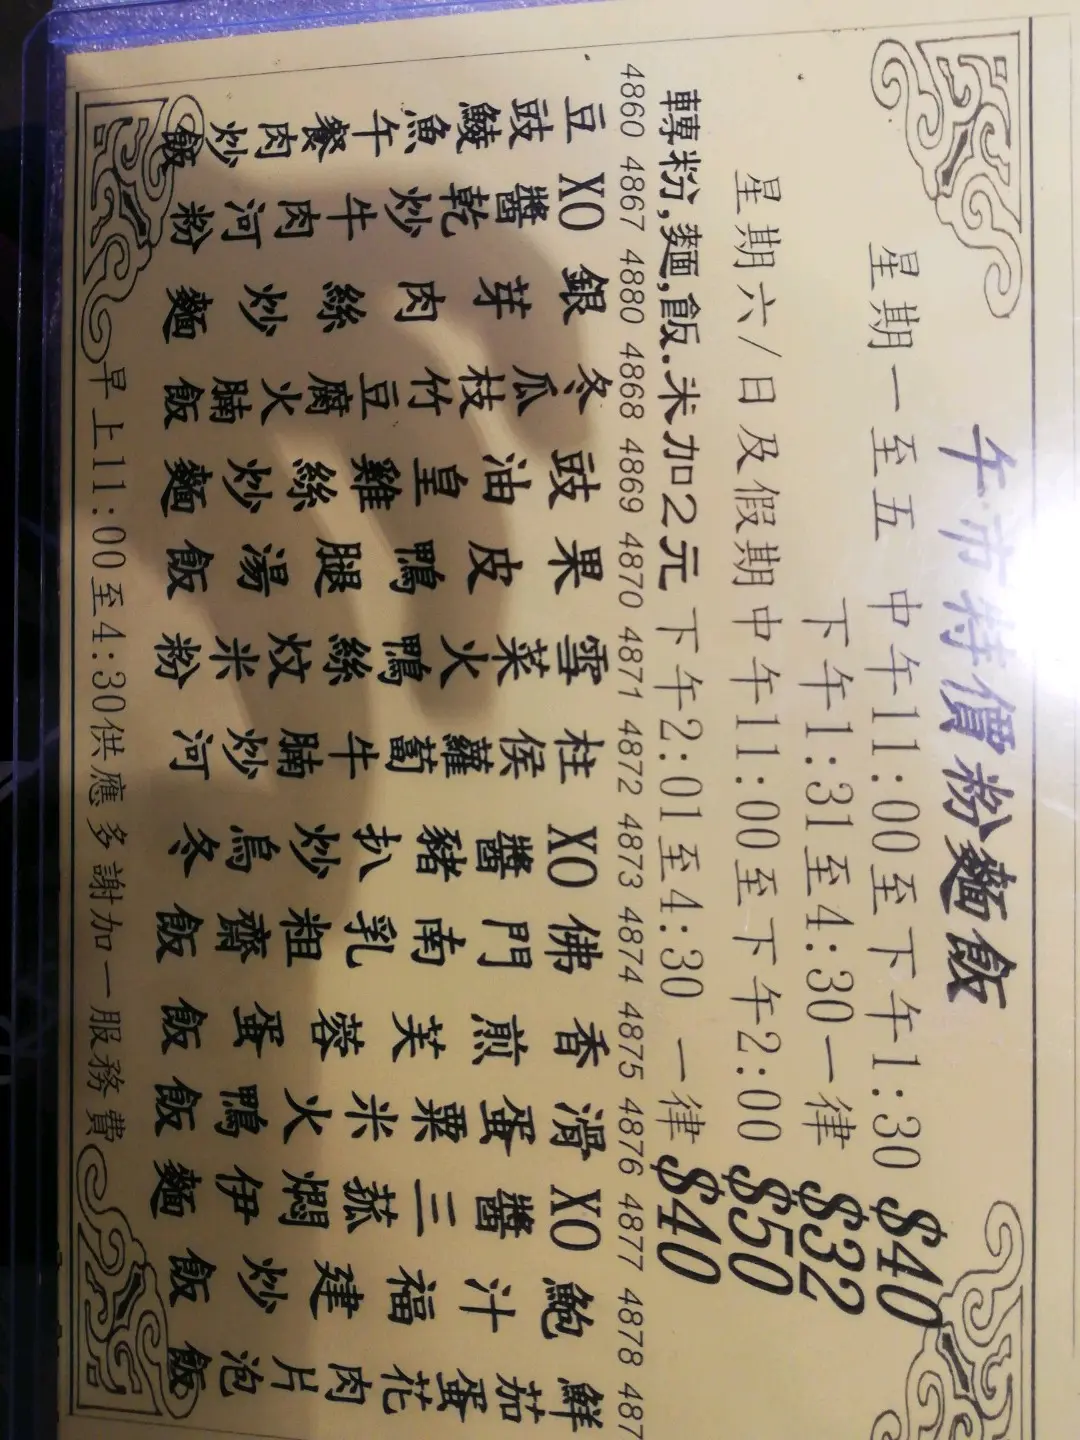 午市特價粉麵飯
星期一至五 中午11:00至下午1:30 $40
下午1:31至4:30一律 $32
星期六/日及假期中午11:00至下午2:00 $50
轉粉,麵,飯.米加2元 下午2:01至4:30 一律 $40
4860 4867 4880 4868 4869 4870 4871 4872 4873 4874 4875 4876 4877 4878 487
豆豉鯪魚午餐肉炒飯
XO醬乾炒牛肉河粉
銀芽肉絲炒麵
冬瓜枝竹豆腐火腩飯
豉油皇雞絲炒麵
果皮鴨腿湯飯
雪菜火鴨絲炆米粉
柱侯蘿蔔牛腩炒河
XO醬豬扒炒烏冬
佛門南乳粗齋飯
香煎芙蓉蛋飯
滑蛋粟米火鴨飯
XO醬三菰燜伊麵
鮑汁福建炒飯
鮮茄蛋花肉片泡飯
早上11:00至4:30供應多謝加一服務費